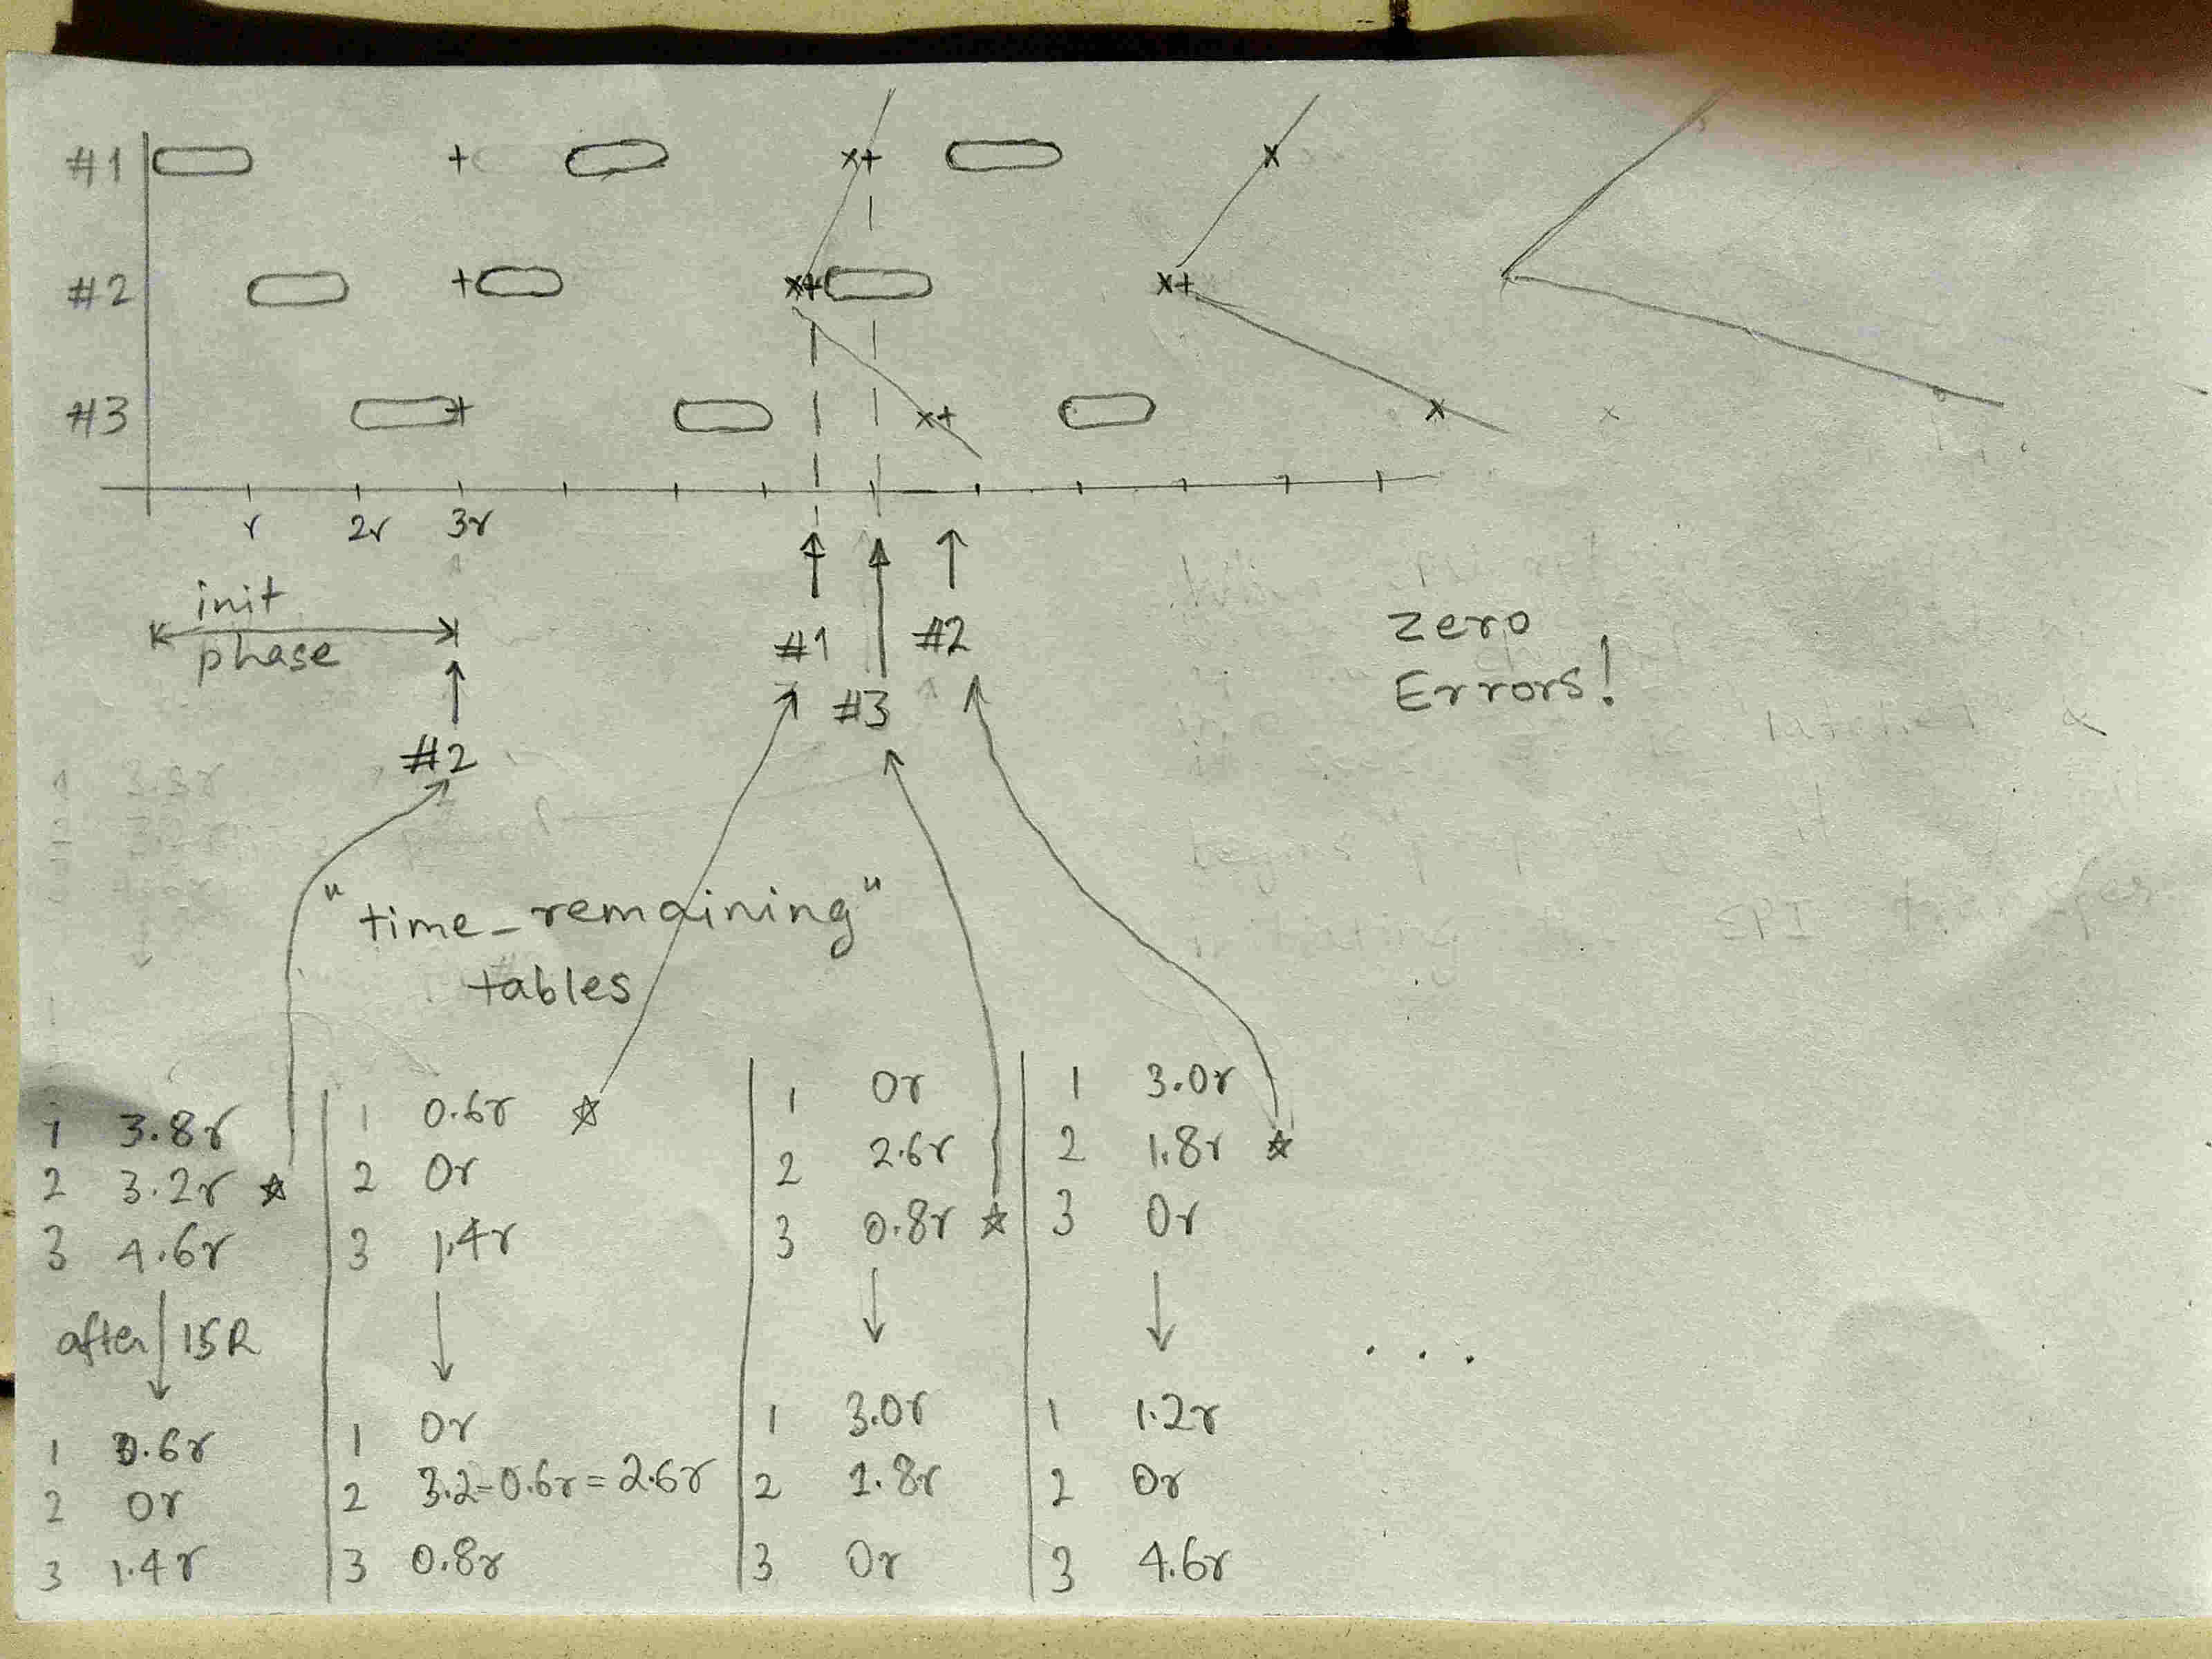 #1
#2
#3
r 2r 3r
init
phase
#2
#1 #3 #2
zero
Errors!
"time_remaining"
tables
1 3.8r
2 3.2r ☆
3 4.6r
after 15R
1 0.6r
2 0r
3 1.4r
1 0.6r ☆
2 0r
3 1.4r
1 0r
2 3.2-0.6r = 2.6r
3 0.8r
1 0r
2 2.6r
3 0.8r ☆
1 3.0r
2 1.8r
3 0r
1 3.0r
2 1.8r ☆
3 0r
1 1.2r
2 0r
3 4.6r
. . .